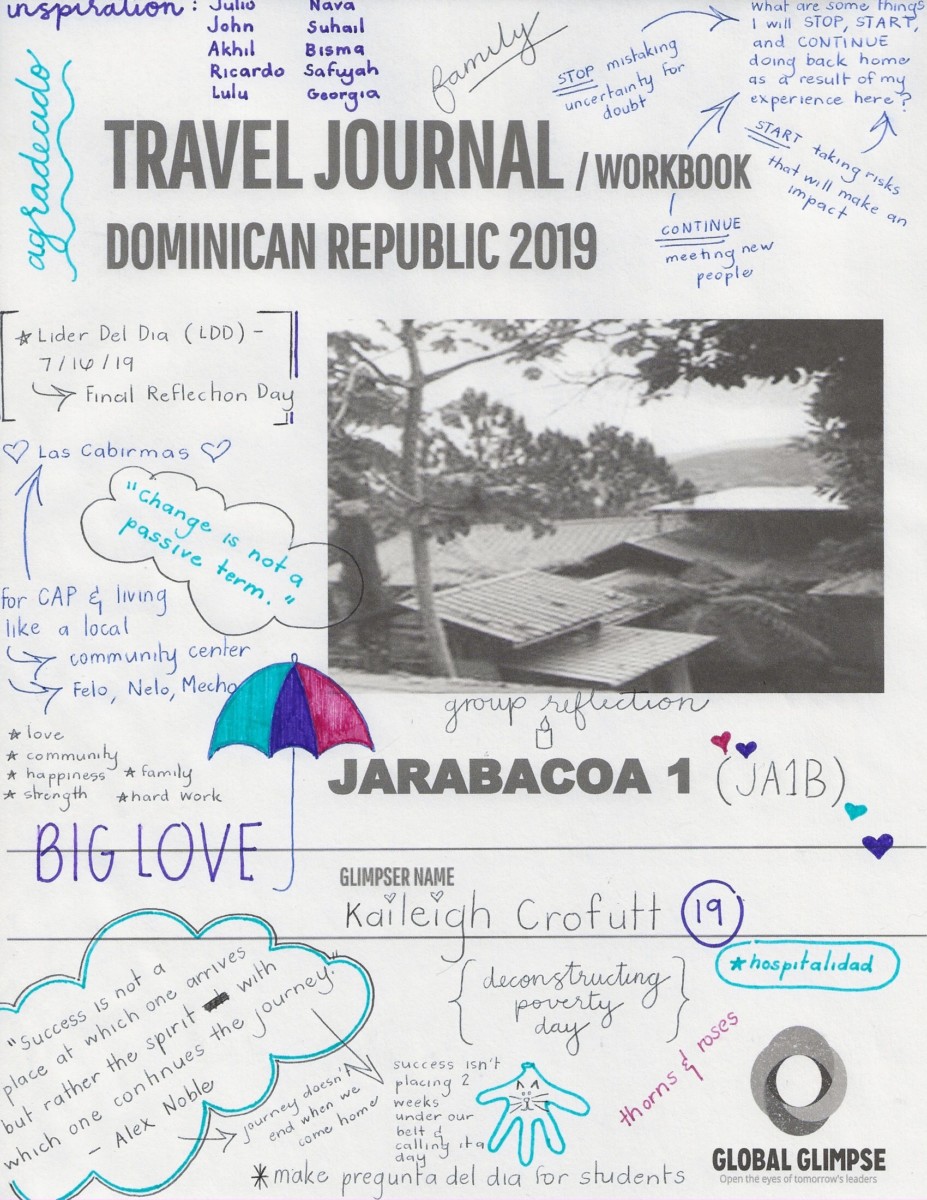 inspiration: Julio Nava
John Suhail
Akhil Bisma
Ricardo Safiyah
Lulu Georgia
family
STOP mistaking
uncertainty for
doubt
What are some things
I will STOP, START,
and CONTINUE
doing back home
as a result of my
experience here?
START taking risks
that will make an
impact
CONTINUE
meeting new
people
agradeado
TRAVEL JOURNAL / WORKBOOK
DOMINICAN REPUBLIC 2019
* Lider Del Dia (LDD) -
7/16/19
Final Reflection Day
Las Cabirmas
"Change is not a
passive term."
for CAP & living
like a local
community center
Felo, Nelo, Mecho
* love
* community
* happiness * family
* strength * hard work
BIG LOVE
group reflection
JARABACOA 1 (JA1B)
GLIMPSER NAME
Kaileigh Crofutt 19
* hospitalidad
"Success is not a
place at which one arrives
but rather the spirit with
which one continues the journey."
- Alex Noble
journey doesn't
end when we
come home
{deconstructing
poverty
day}
success isn't
placing 2
weeks
under our
belt &
calling it a
day
thorns & roses
* make pregunta del dia for students
GLOBAL GLIMPSE
Open the eyes of tomorrow's leaders